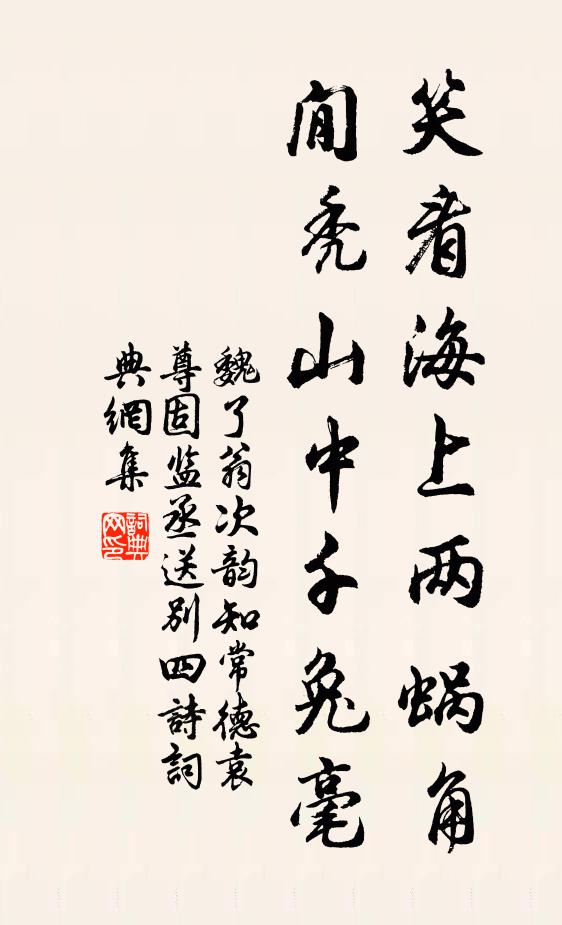 笑看海上两蜗角
闲秃山中千兔毫
魏了翁次韵知常德袁
尊固监丞送别四詩詞
典網集
詞典网印